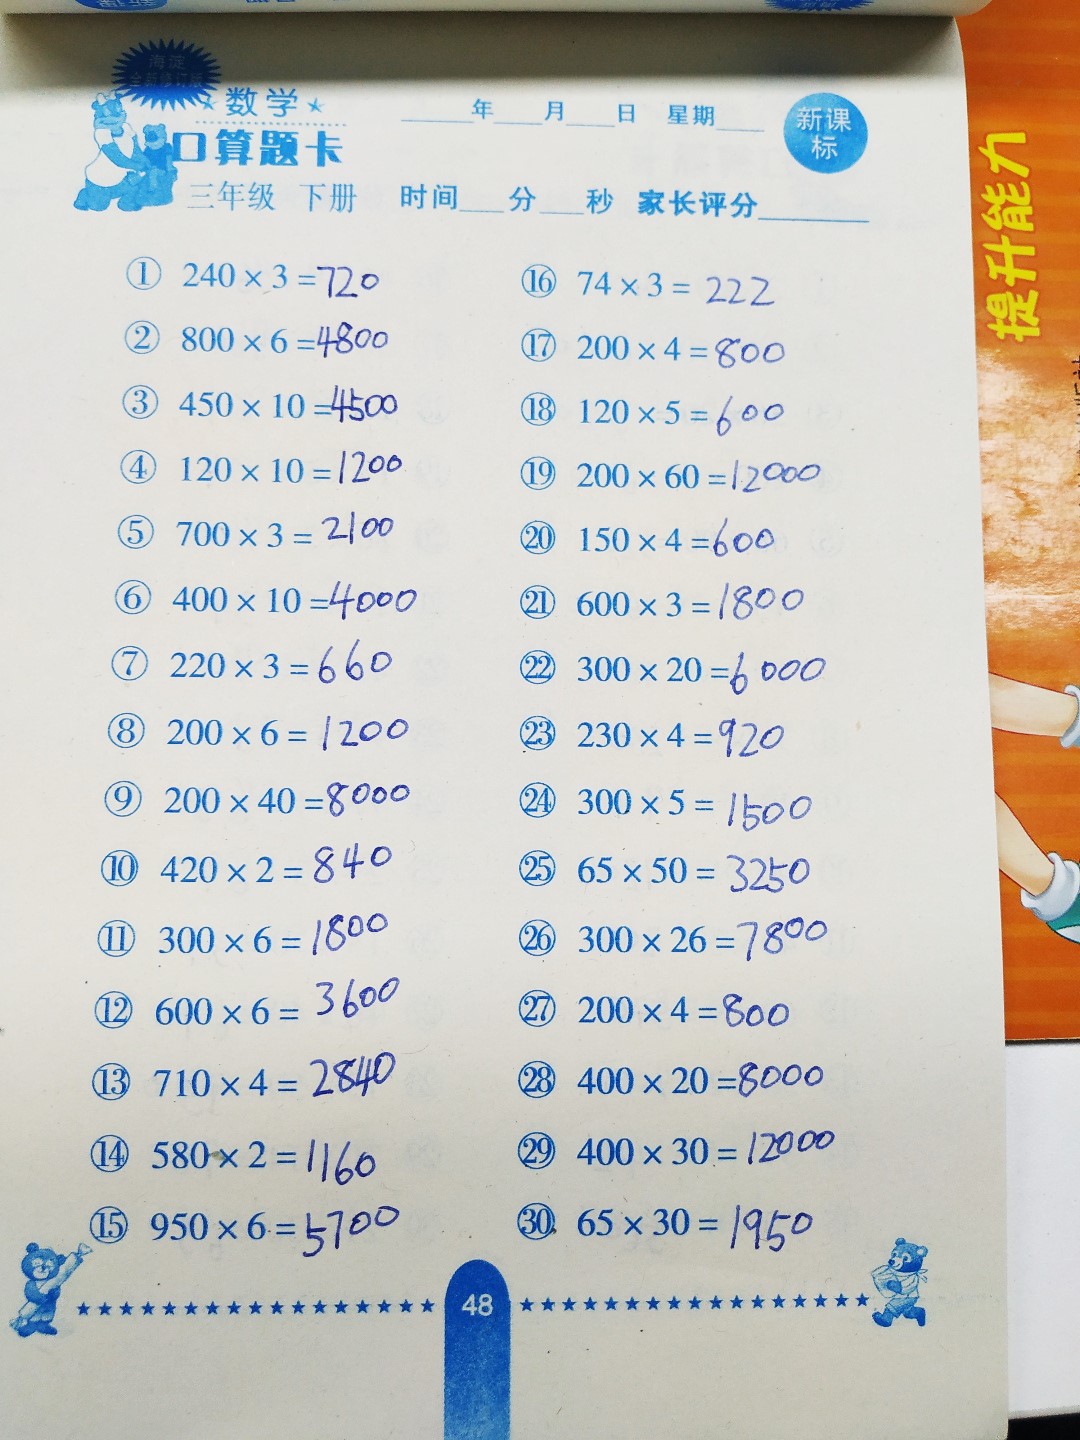 海淀
全品修订版
数学
口算题卡
三年级 下册
年 月 日 星期
时间 分 秒 家长评分
新课
标
提升能力
① 240 × 3 = 720
② 800 × 6 = 4800
③ 450 × 10 = 4500
④ 120 × 10 = 1200
⑤ 700 × 3 = 2100
⑥ 400 × 10 = 4000
⑦ 220 × 3 = 660
⑧ 200 × 6 = 1200
⑨ 200 × 40 = 8000
⑩ 420 × 2 = 840
⑪ 300 × 6 = 1800
⑫ 600 × 6 = 3600
⑬ 710 × 4 = 2840
⑭ 580 × 2 = 1160
⑮ 950 × 6 = 5700
⑯ 74 × 3 = 222
⑰ 200 × 4 = 800
⑱ 120 × 5 = 600
⑲ 200 × 60 = 12000
⑳ 150 × 4 = 600
㉑ 600 × 3 = 1800
㉒ 300 × 20 = 6000
㉓ 230 × 4 = 920
㉔ 300 × 5 = 1500
㉕ 65 × 50 = 3250
㉖ 300 × 26 = 7800
㉗ 200 × 4 = 800
㉘ 400 × 20 = 8000
㉙ 400 × 30 = 12000
㉚ 65 × 30 = 1950
48